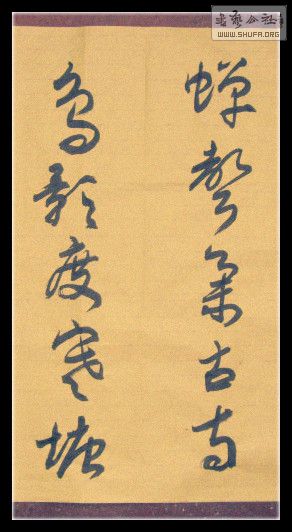 蟬聲集古寺
鳥影度寒塘
書藝公社
WWW.SHUFA.ORG